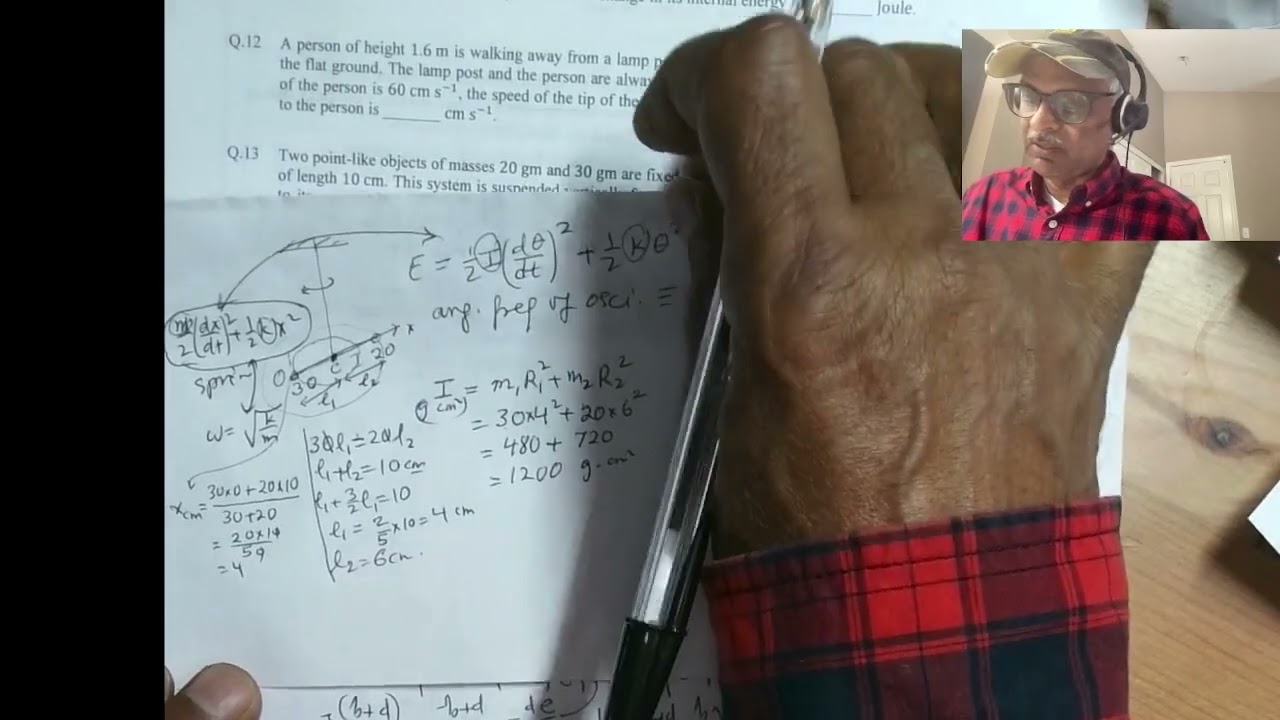 Joule.
Q.12 A person of height 1.6 m is walking away from a lamp
the flat ground. The lamp post and the person are
of the person is 60 cm s⁻¹, the speed of the tip of the
to the person is ______ cm s⁻¹.
Q.13 Two point-like objects of masses 20 gm and 30 gm are
of length 10 cm. This system is suspended
E = ½ I (dθ/dt)² + ½ k θ²
ang. freq of osci. ≡
m/2 (dx/dt)² + ½ k x²
x
C
20
O
30
l₁
l₂
spring
ω = √(k/m)
x_cm = (30×0 + 20×10)/(30+20)
= 4
30l₁ = 20l₂
l₁ + l₂ = 10 cm
l₁ + 3/2 l₁ = 10
l₁ = 2/5 × 10 = 4 cm
l₂ = 6 cm.
I = m₁R₁² + m₂R₂²
= 30×4² + 20×6²
= 480 + 720
= 1200 g·cm²
(h+d)
h+d
de